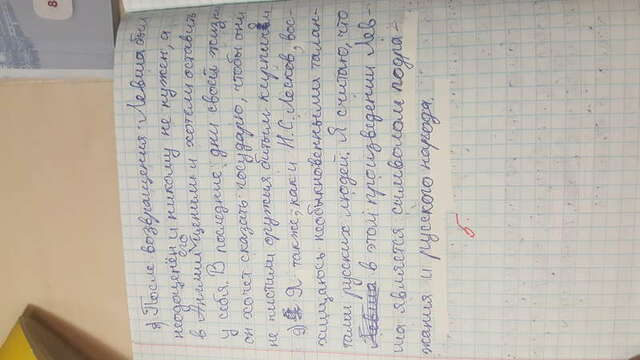 8
г) После возвращения Левша был
недооценён и никому не нужен, а
в Англии его ценили и хотели оставить
у себя. В последние дни своей жизни
он хочет сказать государю, чтобы они
не чистили оружия битым кирпичём
д) Я также, как и Н.С.Лесков, вос-
хищаюсь необыкновенными талан-
тами русских людей. Я считаю, что
в этом произведении Лев-
ша является символом подра-
жания и русского народа.
5